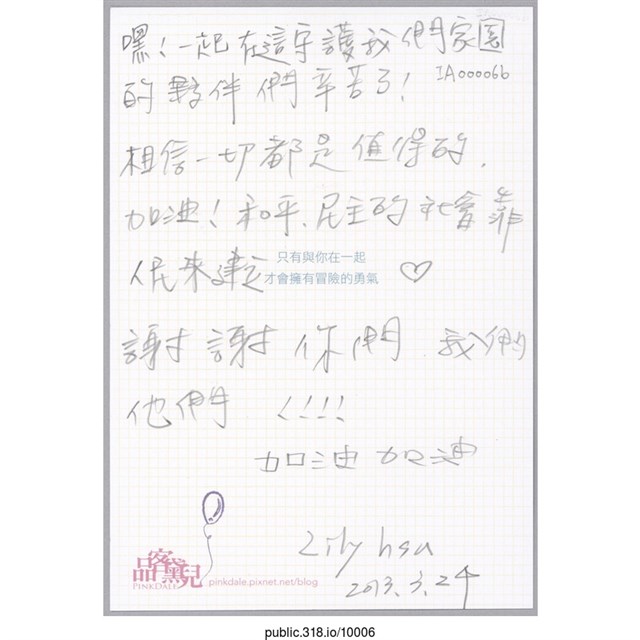 嘿！一起在這守護我們家園
IA00006b
的夥伴們辛苦了！
相信一切都是值得的，
加油！和平、民主的社會靠
只有與你在一起
人民來建立
才會擁有冒險的勇氣
謝謝 你們 我們
他們 ！！！！
加油 加油
Lily hsu
品客黛兒
PINKDALE
pinkdale.pixnet.net/blog
2013.3.24
public.318.io/10006